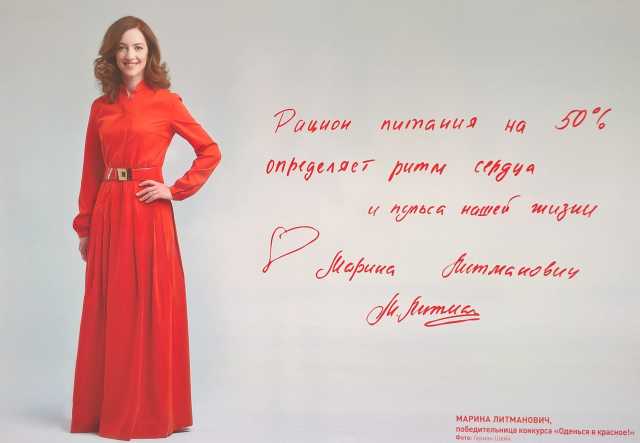 Рацион питания на 50%
определяет ритм сердца
и пульса нашей жизни
Марина Литманович
М. Литма
МАРИНА ЛИТМАНОВИЧ,
победительница конкурса «Оденься в красное!»
Фото: Герман Шейн